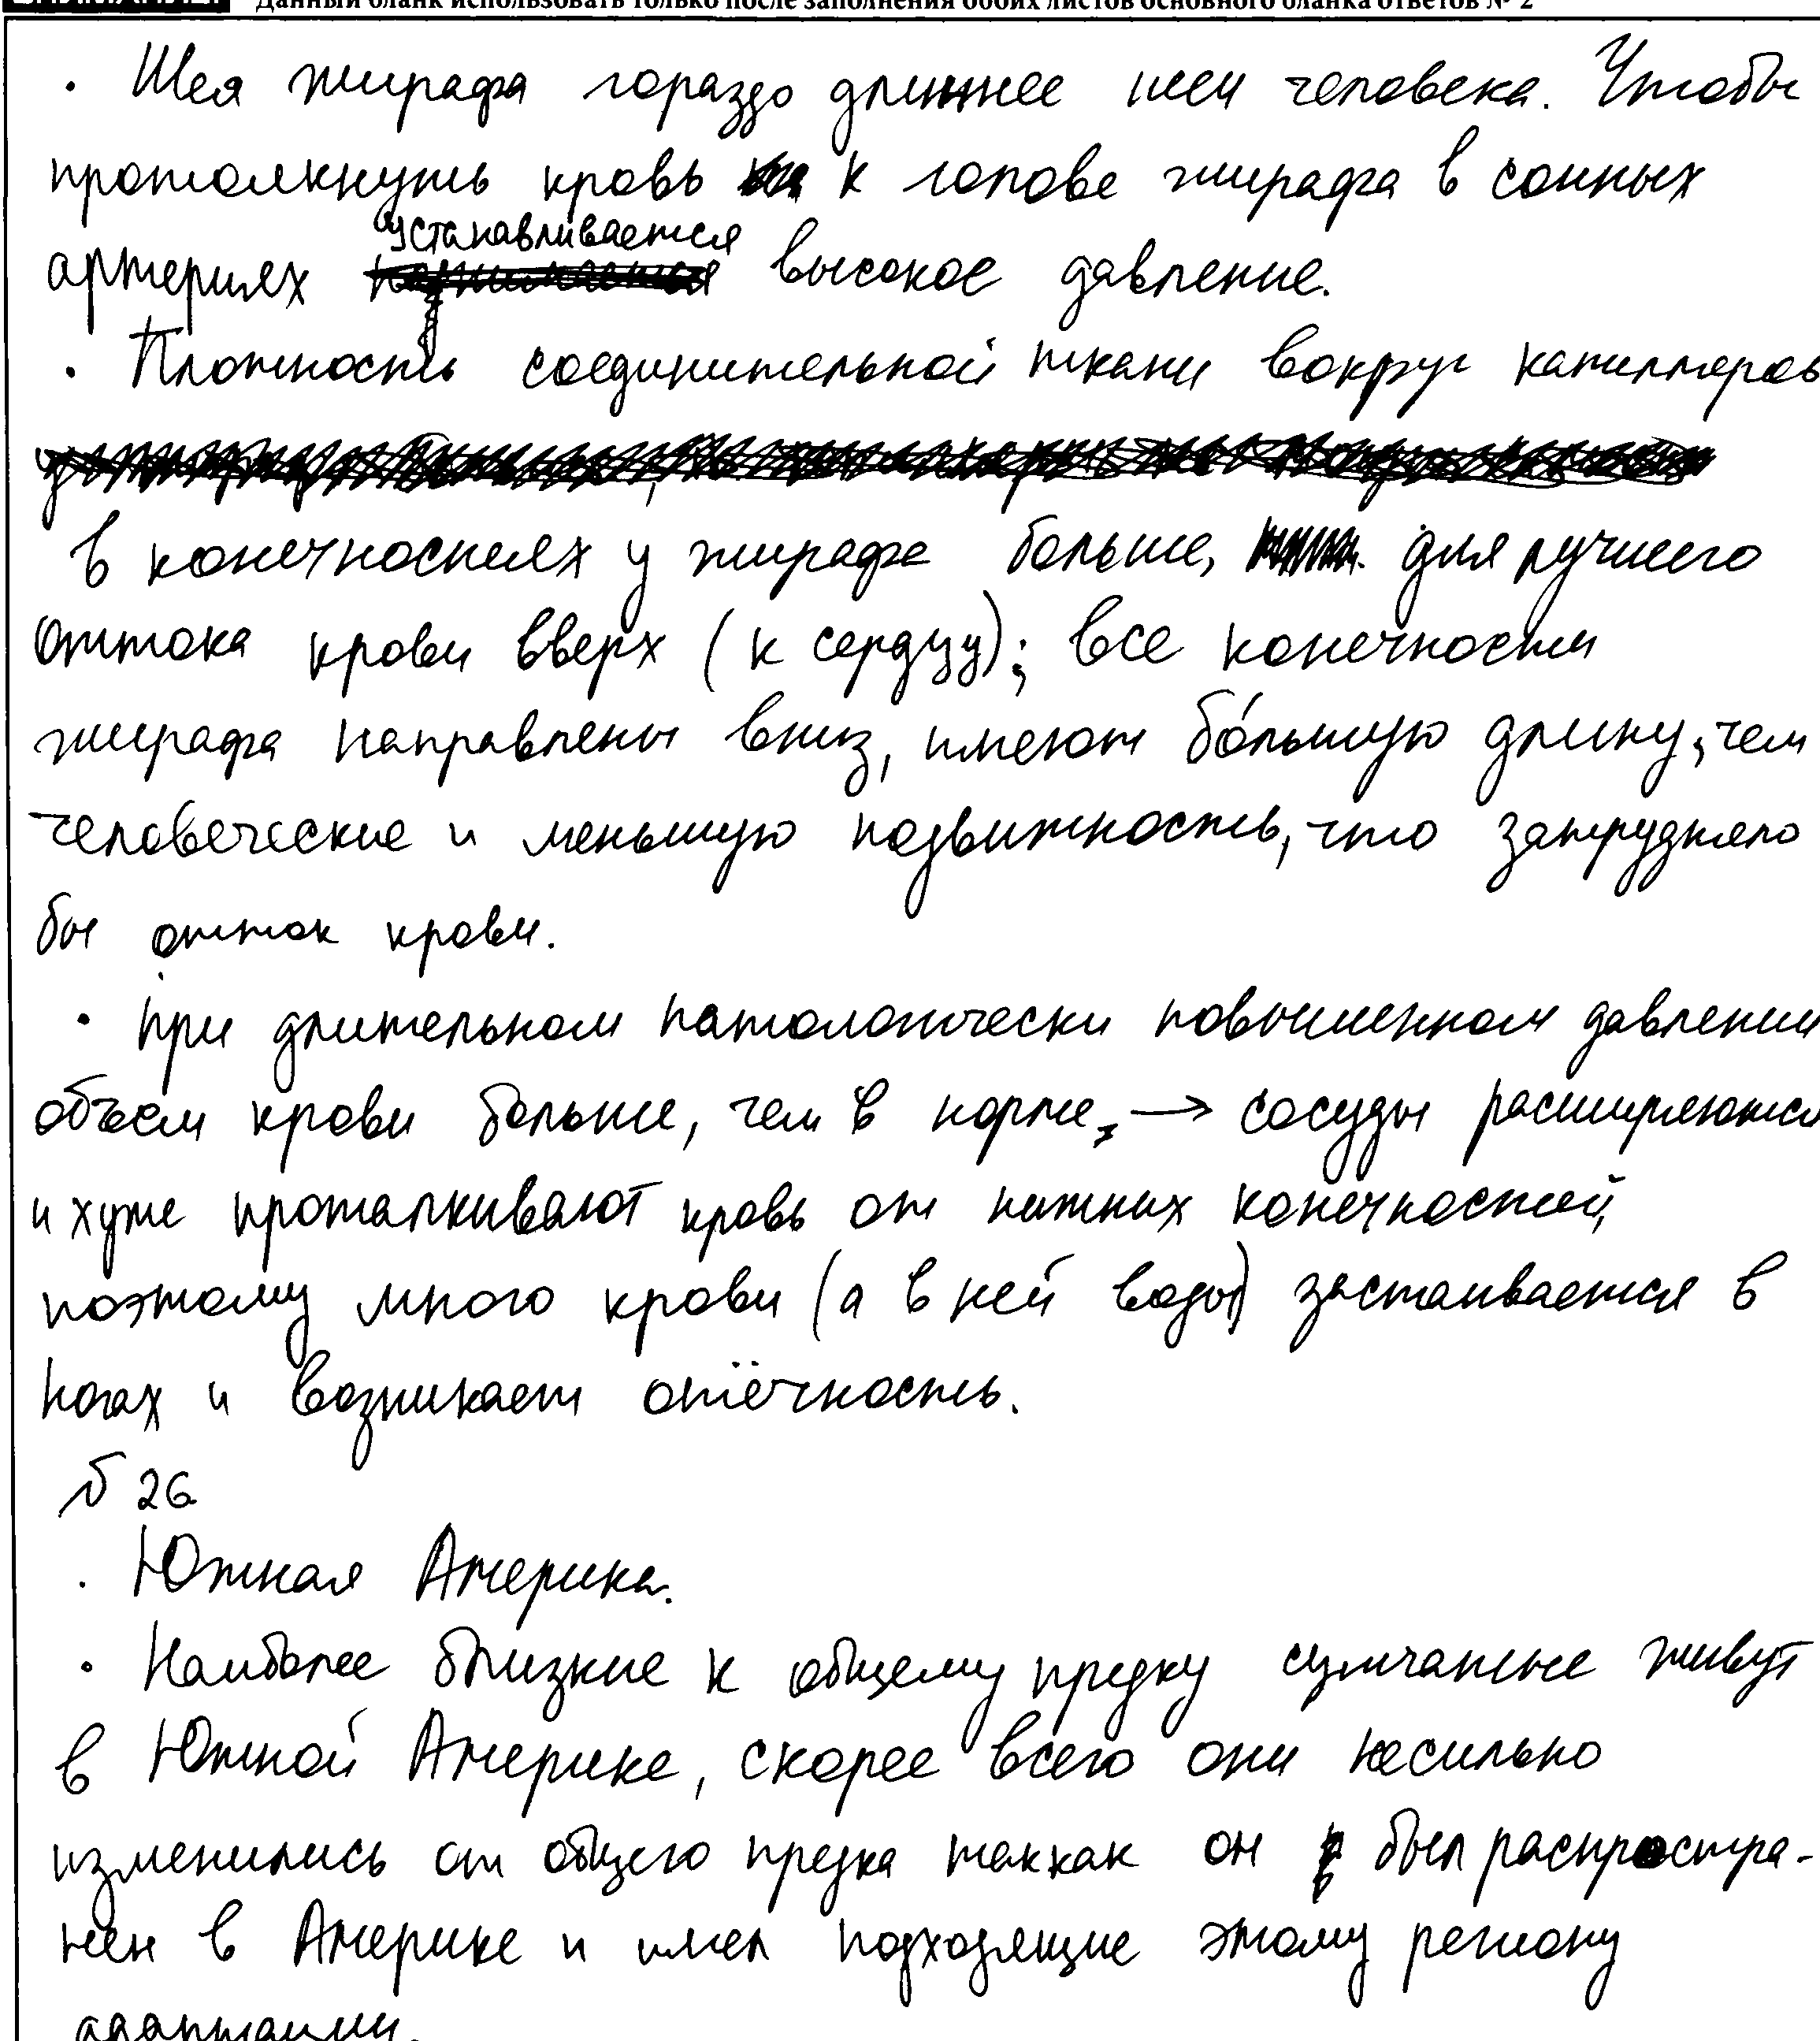 Данный бланк использовать только после заполнения обоих листов основного бланка ответов № 2
· Шея жирафа гораздо длиннее шеи человека. Чтобы
протолкнуть кровь к голове жирафа в сонных
устанавливается
артериях высокое давление.
· Плотность соединительной ткани вокруг капилляров
в конечностях у жирафа больше, для лучшего
оттока крови вверх (к сердцу); все конечности
жирафа направлены вниз, имеют бо́льшую длину, чем
человеческие и меньшую подвижность, что затрудняло
бы отток крови.
· при длительном патологически повышенном давлении
объем крови больше, чем в норме, → сосуды расширяются
и хуже проталкивают кровь от нижних конечностей,
поэтому много крови (а в ней воды) застаивается в
ногах и возникает отёчность.
№ 26
· Южная Америка.
· Наиболее близкие к общему предку сумчатые живут
в Южной Америке, скорее всего они несильно
изменились от общего предка таккак он был распростра-
нен в Америке и имел подходящие этому региону
адаптации.